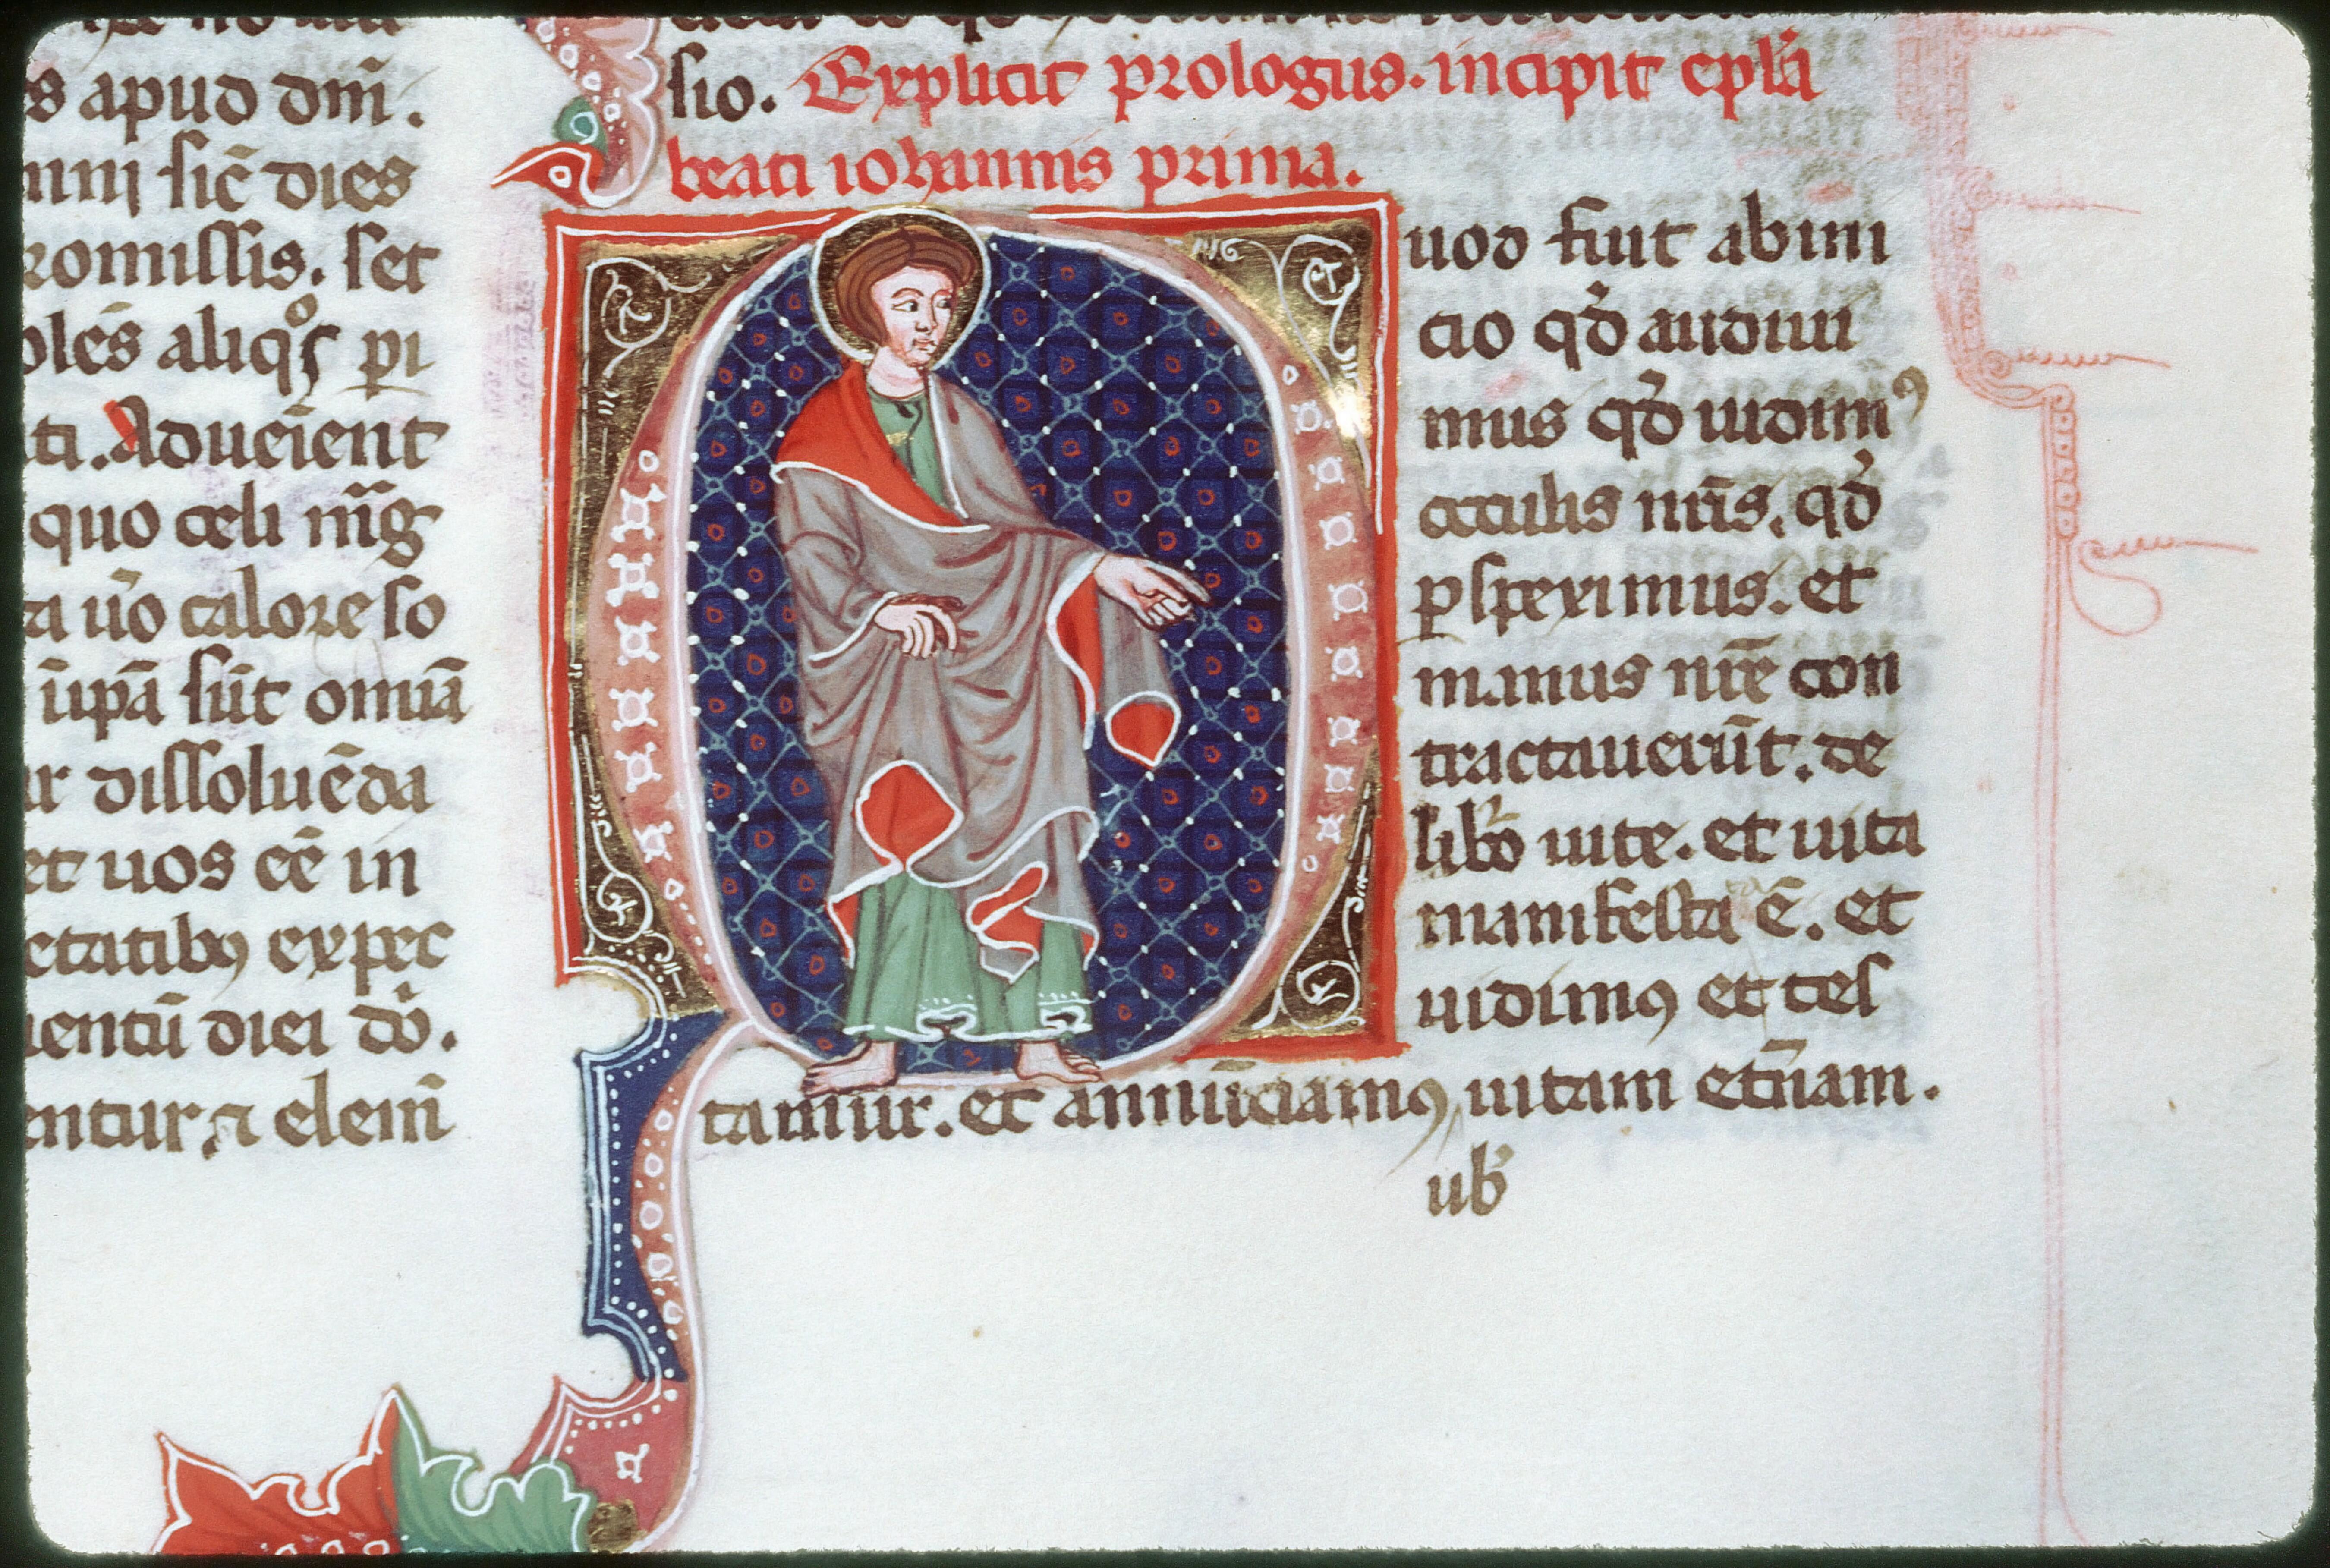 s apud dm̄.
nnj sic̄ dies
romissis. set
ples aliqͦs pi
ti. Adueīent
quo celi m̄g
ta ūo calore so
īipā sūt omīa
ur dissoluēda
et uos eē in
etatibꝯ expec
uentū diei dō.
entur, ⁊ elem̄
sio. Explicit prologus. incipit epl̄a
beati iohannis prima.
uod fuit abini
cio qd̄ audiui
mus qd̄ uidimꝰ
occulis nr̄is. qd̄
ꝑspeximus. et
manus nr̄e con
tractauerūt. de
uite. et uita
manifesta ē. et
uidimꝯ et tes
tamur. et annūciamꝯ uitam et̄nam.
ub̄